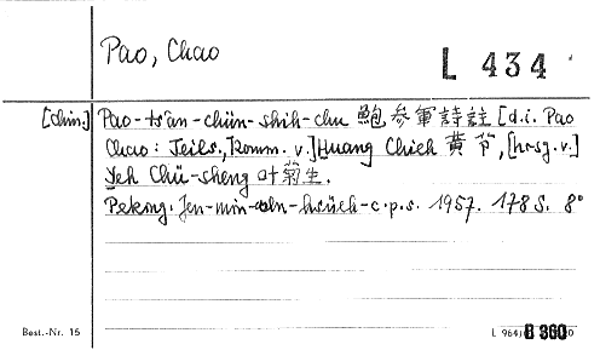 Pao, Chao
L 434
[chin.] Pao-ts'an-chün-shih-chu 鮑参軍詩註 [d.i. Pao
Chao: Teils., Komm. v.] Huang Chieh 黄节, [hrsg. v.]
Yeh Chü-sheng 叶菊生.
Peking: Jen-min-wên-hsüeh-c.p.s. 1957. 178 S. 8°
Best.-Nr. 15
L 964
B 360